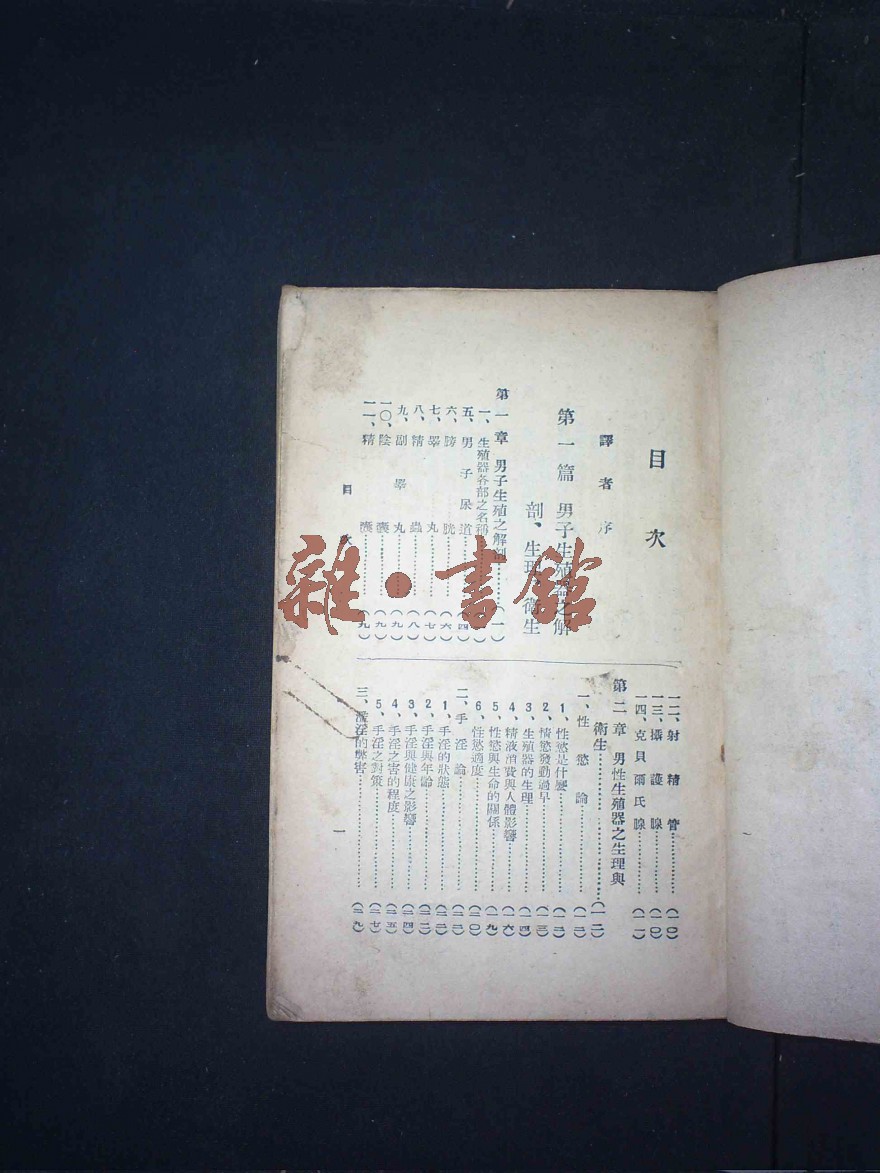 目次
譯者序
第一篇 男子生殖器之解
剖、生理、衛生
第一章 男子生殖之解剖……(一)
一、生殖器各部之名稱
五、男子尿道……(四)
六、膀胱……(六)
七、睪丸……(七)
八、精蟲……(八)
九、副睪丸……(九)
一〇、陰囊……(九)
一一、精囊……(九)
一二、射精管……(一〇)
一三、攝護腺……(一〇)
一四、克貝爾氏腺……(一一)
第二章 男性生殖器之生理與
衛生……(一二)
一、性慾論……(一二)
1、性慾是什麼……(一二)
2、情慾發動過早……(一三)
3、生殖器的生理……(一四)
4、精液消費與人體影響……(一六)
5、性慾與生命的關係……(一九)
6、性慾適度……(二〇)
二、手淫論……(二二)
1、手淫的狀態……(二二)
2、手淫與年齡……(二二)
3、手淫與健康之影響……(二四)
4、手淫之害的程度……(二五)
5、手淫之對策……(二七)
三、濫淫的弊害……(二九)
目次
一
雜·書館